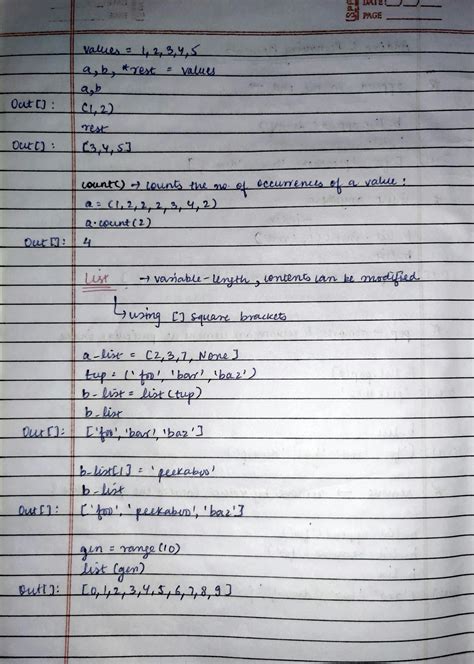 DATE
PAGE
values = 1,2,3,4,5
a,b, *rest = values
a,b
Out[]: (1,2)
rest
Out[]: [3,4,5]
count() → counts the no. of occurrences of a value:
a = (1,2,2,2,3,4,2)
a.count(2)
Out[]: 4
List → variable-length, contents can be modified
↳ using [] square brackets
a_list = [2,3,7, None]
tup = ('foo', 'bar', 'baz')
b_list = list(tup)
b_list
Out[]: ['foo', 'bar', 'baz']
b_list[1] = 'peekaboo'
b_list
Out[]: ['foo', 'peekaboo', 'baz']
gen = range(10)
list(gen)
Out[]: [0,1,2,3,4,5,6,7,8,9]